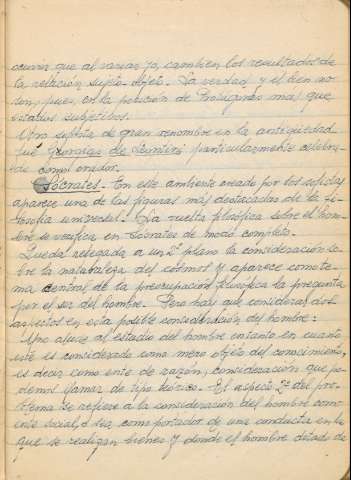 ocurrir que al variar yo, cambien los resultados de
la relación sujeto-objeto.- La verdad y el bien no
son, pues, en la posición de Protágoras más que
estados subjetivos.
Otro sofista de gran renombre en la antigüedad
fué Gorgias de Leontini particularmente celebra-
do como orador.
Sócrates.- En este ambiente creado por los sofistas
aparece una de las figuras más destacadas de la fi-
losofía universal.- La vuelta filosófica sobre el hom-
bre se verifica en Sócrates de modo completo.
Queda relegada a un 2º plano la consideración so-
bre la naturaleza del cosmos y aparece como te-
ma central de la preocupación filosófica la pregunta
por el ser del hombre. Pero hay que considerar dos
aspectos en esta posible consideración del hombre:
Uno alude al estudio del hombre en tanto en cuanto
este es considerado como mero objeto del conocimiento,
es decir como ente de razón, consideración que po-
demos llamar de tipo teórico.- El aspecto 2º del pro-
blema se refiere a la consideración del hombre como
ente social, o sea comportador de una conducta en la
que se realizan bienes y donde el hombre dotado de